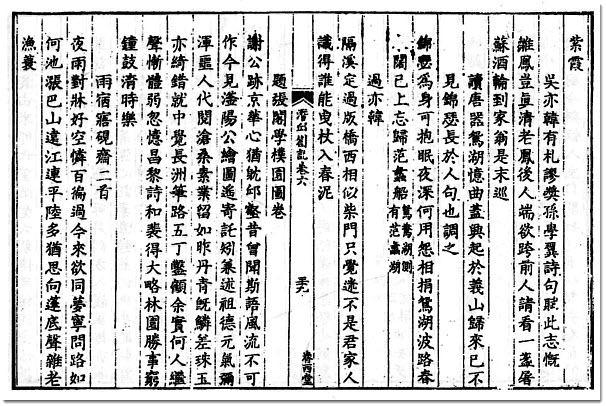 紫霞
吳亦韓有札謬獎孫學翼詩句賦此志慨
雛鳳豈眞清老鳳後人端欲跨前人請看一盞屠
蘇酒輸到家翁是末巡
讀唐器鴛湖憶曲盡興起於義山歸來已不
見錦瑟長於人句也調之
錦瑟爲身可抱眠夜深何用怨相捐鴛湖波路春
闊已上忘歸范蠡船鴛鴦湖側有范蠡湖
過亦韓
隔溪定過版橋西相似柴門只覺迷不是君家人
識得誰能曳杖入春泥
潛邱劄記卷六
眷西堂
題張閣學樸園圖卷
謝公跡京華心猶眈邱壑昔曾聞斯語風流不可
作今見滏陽公繪圖遙寄託矧兼述祖德元氣彌
渾噩人代閱滄桑素業留如昨丹青旣鱗差珠玉
亦綺錯就中覺長洲筆路五丁鑿顧余實何人繼
聲慚體弱忽憶昌黎詩和裴得大略林園勝事窮
鐘鼓清時樂
雨宿寤硯齋二首
夜雨對牀好空憐百徧過今來欲同夢寧問路如
何池漲巴山遠江連平陸多猶思向蓬底聲雜老
漁蓑